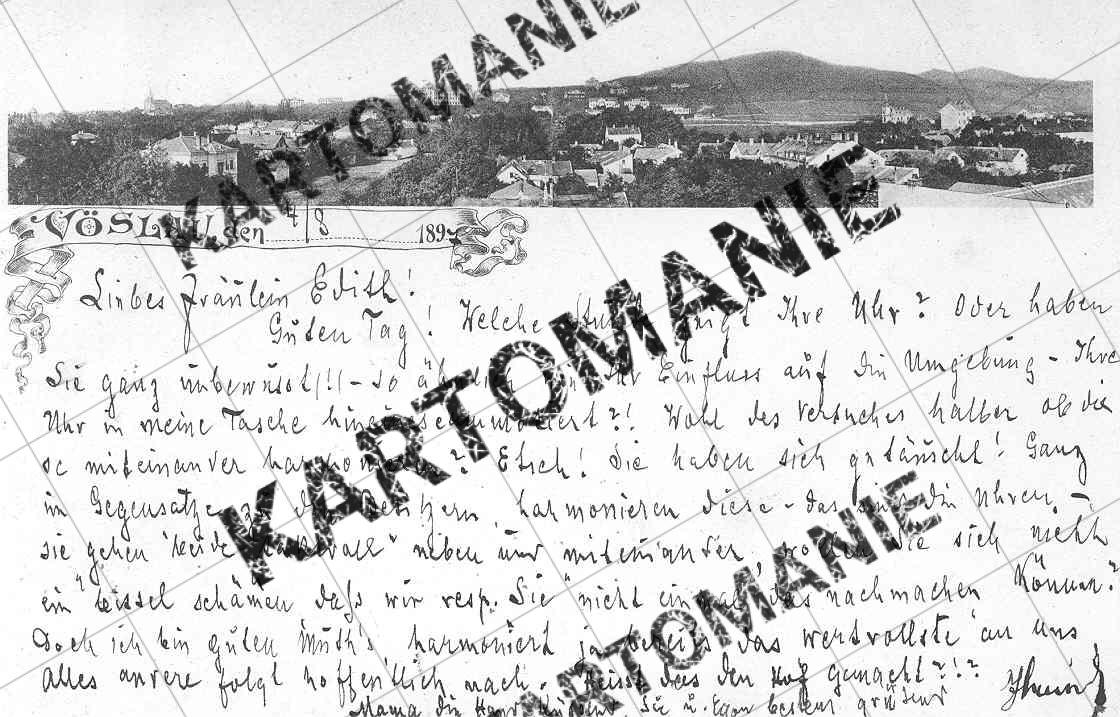 VÖSLAU, den 4/8 189
Liebes Fräulein Edith!
Guten Tag! Welche zeigt Ihre Uhr? Oder haben
Sie ganz unbewusst!!! – so Einfluss auf die Umgebung – Ihre
Uhr in meine Tasche ?! Wohl des Versuches halber ob die
se miteinander harmonieren? Etsch! Sie haben sich getäuscht! Ganz
im Gegensatze zu den Besitzern harmonieren diese – das sind die Uhren –
sie gehen beide neben und miteinander, wollen Sie sich nicht
ein bissel schämen daß wir resp. Sie nicht einmal das nachmachen können?
Doch ich bin guten Muth's harmoniert ja bereits das wertvollste an uns
alles andere folgt hoffentlich nach. Heisst das den Hof gemacht?!?
Mama die Hand Sie u. Egon bestens grüssend
KARTOMANIE
KARTOMANIE
KARTOMANIE